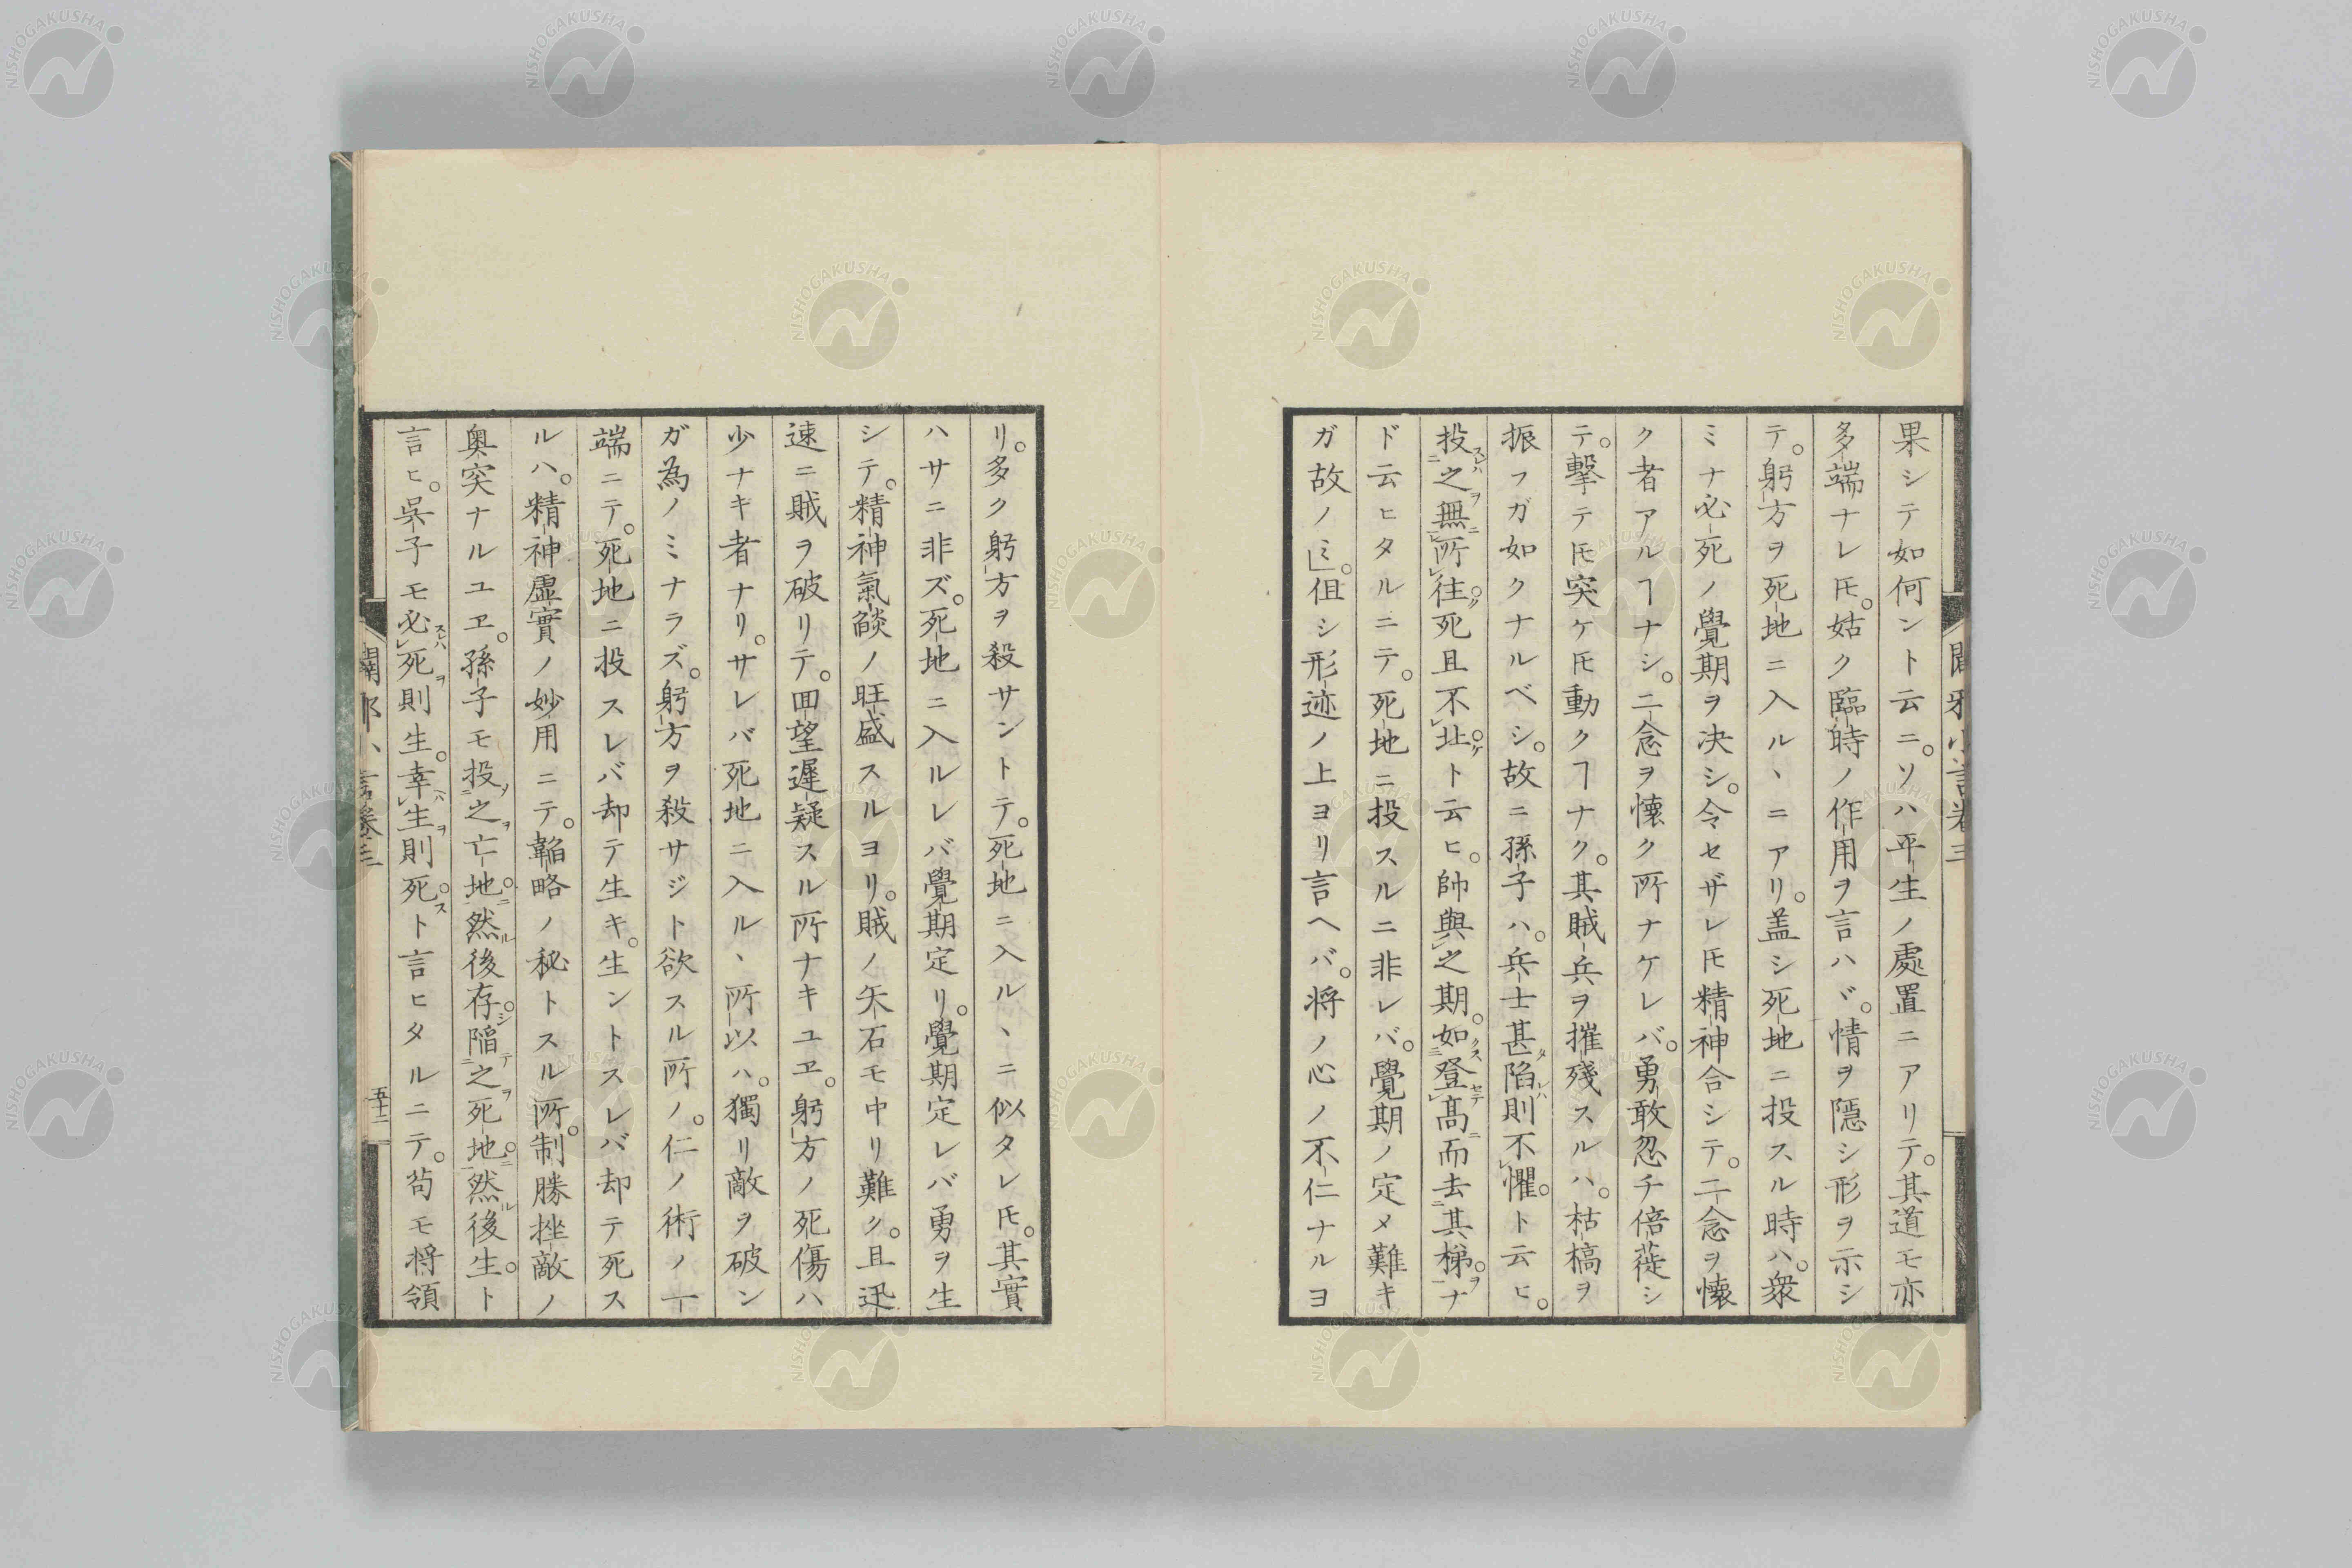 果シテ如何ント云ニ。ソハ平生ノ處置ニアリテ。其道モ亦
多端ナレ𪜈。姑ク臨時ノ作用ヲ言ハヾ。情ヲ隱シ形ヲ示シ
テ。躬方ヲ死地ニ入ルヽニアリ。盖シ死地ニ投スル時ハ。衆
ミナ必死ノ覺期ヲ决シ。令セザレ𪜈精神合シテ。二念ヲ懐
ク者アルヿナシ。二念ヲ懐ク所ナケレバ。勇敢忽チ倍蓰シ
テ。擊テ𪜈突ケ𪜈動クヿナク。其賊兵ヲ摧殘スルハ。枯槁ヲ
振フガ如クナルベシ。故ニ孫子ハ。兵士甚陷則不懼。ト云ヒ。
投之無所往。死且不北。ト云ヒ。帥與之期。如登高而去其梯。ナ
ド云ヒタルニテ。死地ニ投スルニ非レバ。覺期ノ定メ難キ
ガ故ノミ。伹シ形迹ノ上ヨリ言ヘバ。将ノ心ノ不仁ナルヨ
リ。多ク躬方ヲ殺サントテ。死地ニ入ルヽニ似タレ𪜈。其實
ハサニ非ズ。死地ニ入ルレバ覺期定リ。覺期定レバ勇ヲ生
シテ。精神氣燄ノ旺盛スルヨリ。賊ノ矢石モ中リ難ク。且迅
速ニ賊ヲ破リテ。囬望遲疑スル所ナキユヱ。躬方ノ死傷ハ
少ナキ者ナリ。サレバ死地ニ入ルヽ所以ハ。獨リ敵ヲ破ン
ガ為ノミナラズ。躬方ヲ殺サジト欲スル所ノ。仁ノ術ノ一
端ニテ。死地ニ投スレバ却テ生キ。生ントスレバ却テ死ス
ルハ。精神虛實ノ妙用ニテ。韜略ノ秘トスル所。制勝挫敵ノ
奥突ナルユヱ。孫子モ投之亡地。然後存。陷之死地。然後生。ト
言ヒ。吳子モ必死則生。幸生則死。ト言ヒタルニテ。苟モ将領
五十二